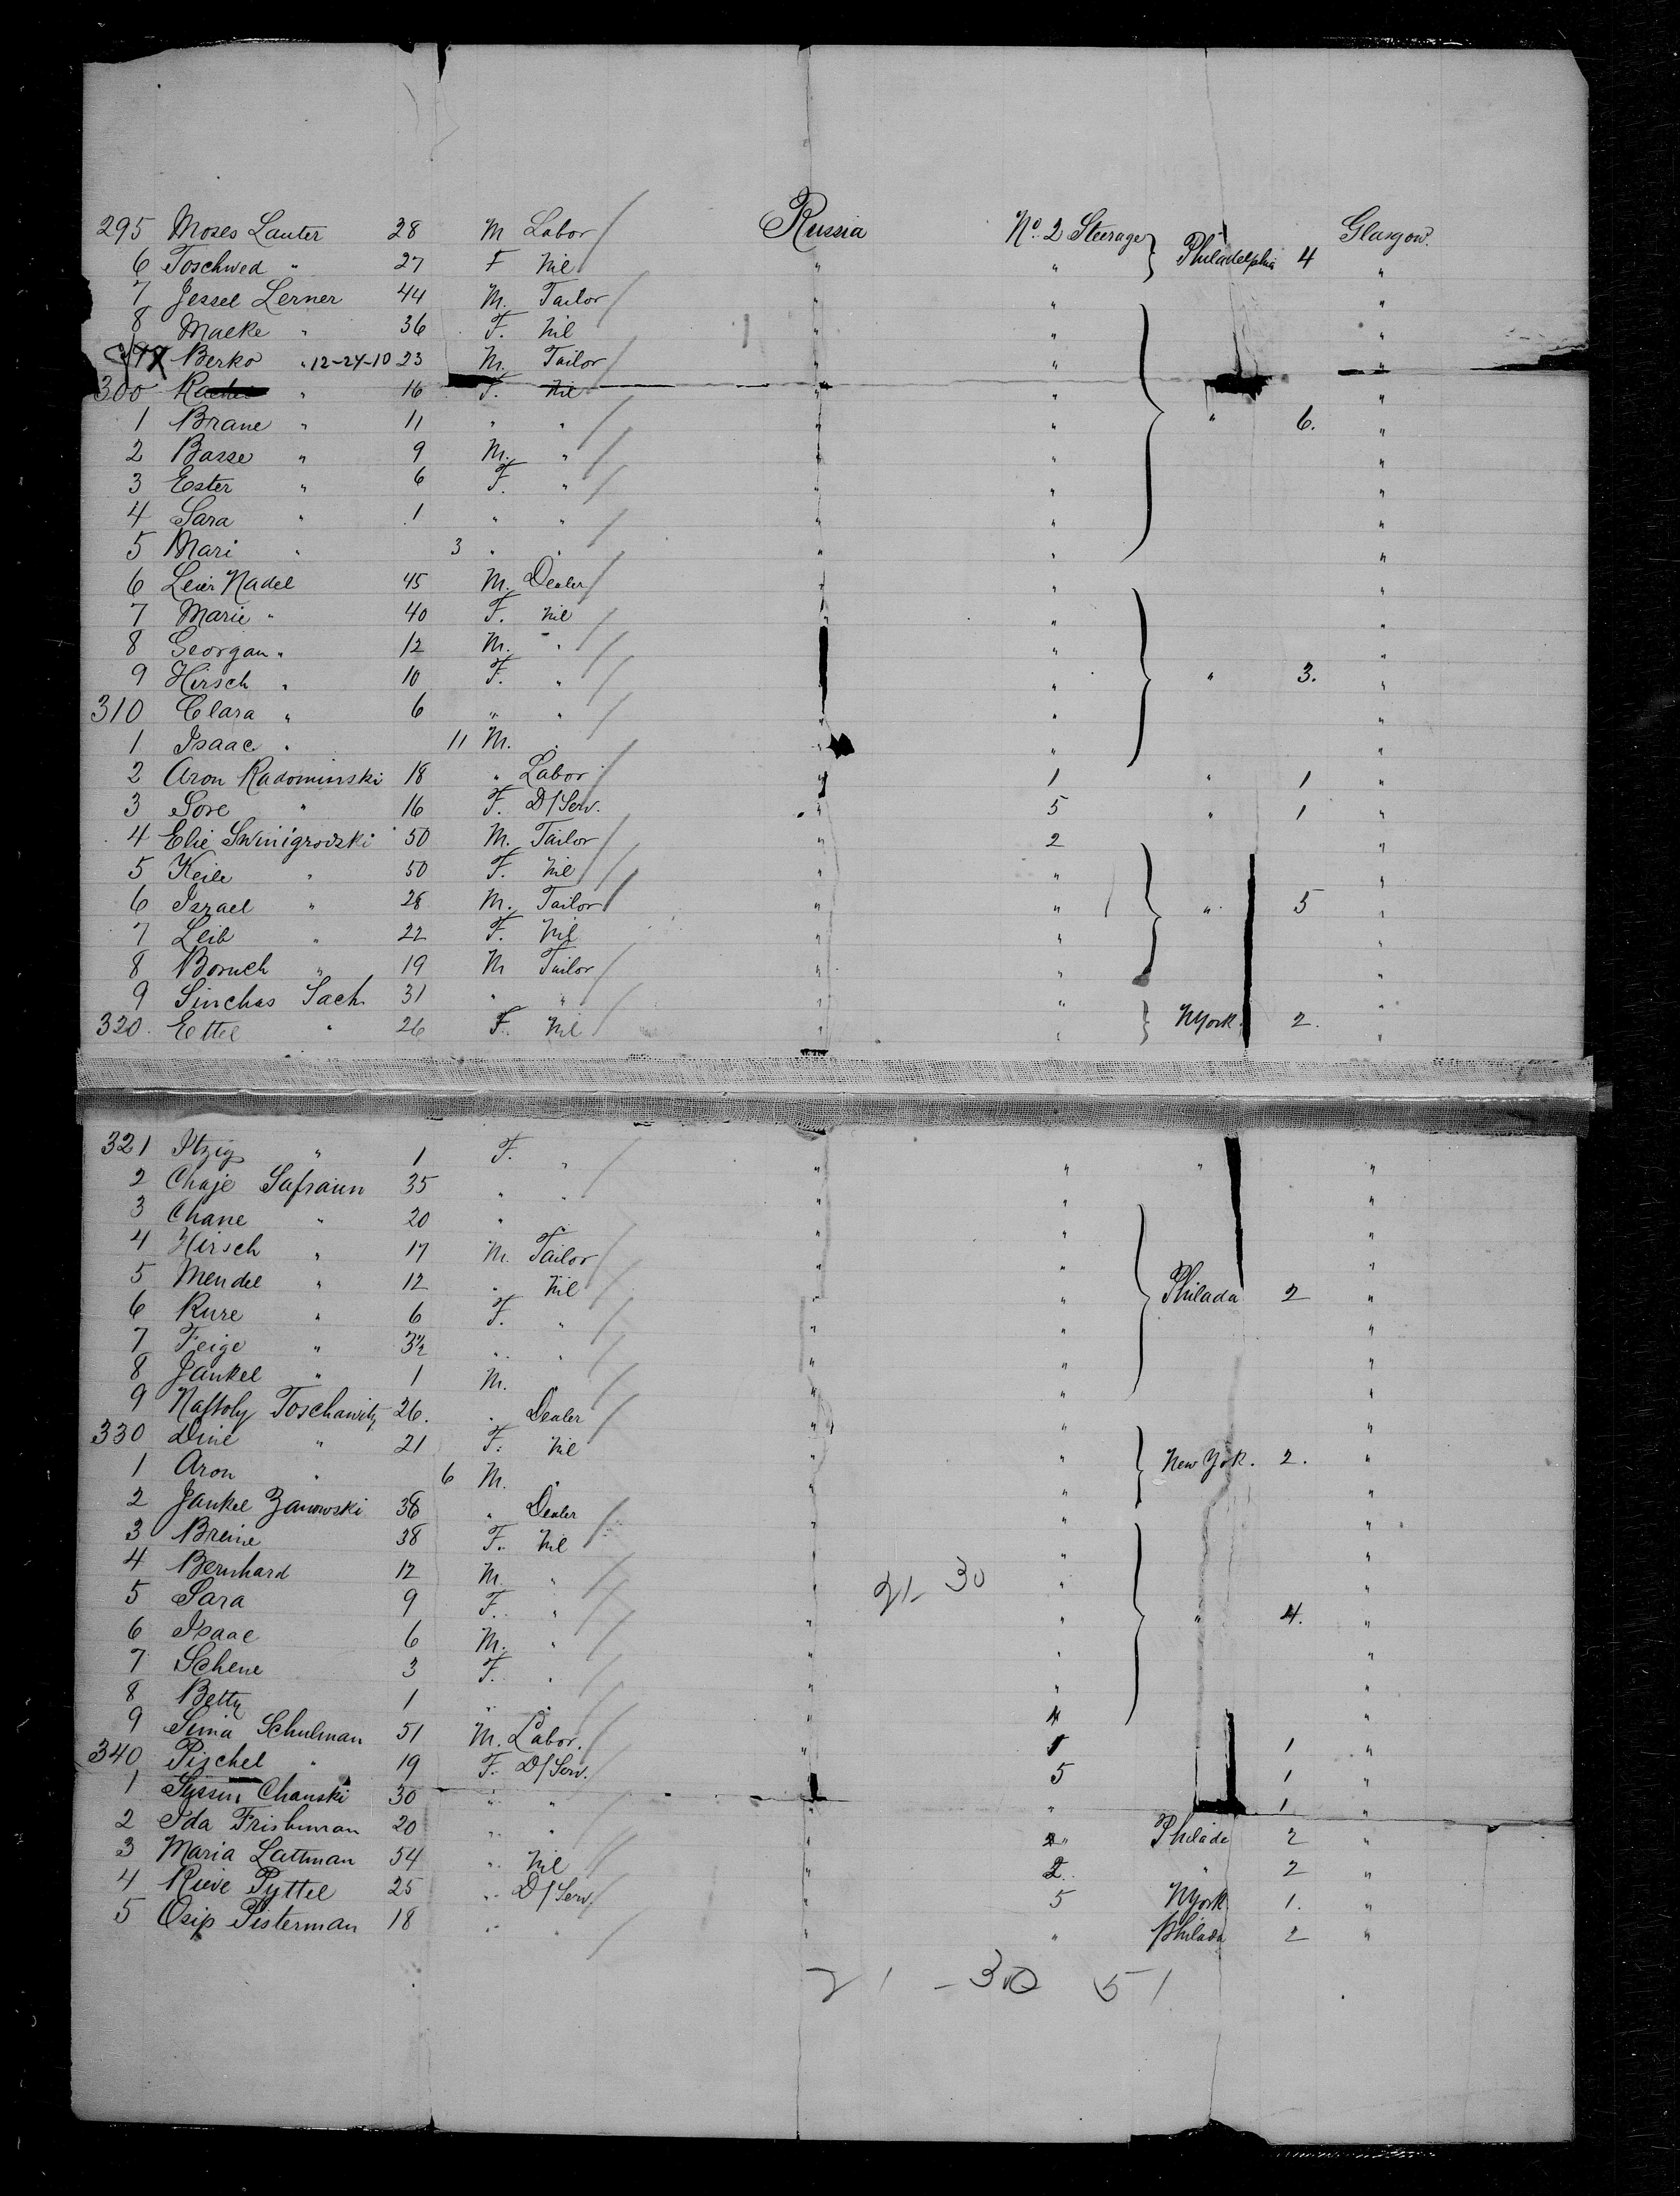 295 Moses Lauter 28 M Labor Russia No. 2 Steerage Glasgow.
6 Toschwed " 27 F Nil " " Philadelphia 4 "
7 Jessel Lerner 44 M. Tailor " " "
8 Malke " 36 F. Nil " " "
Berko " 12-24-10 23 M. Tailor " " "
300 " 16 F. Nil " " "
1 Brane " 11 " " " " " 6. "
2 Basse " 9 M. " " " "
3 Ester " 6 F. " " " "
4 Sara " 1 " " " " "
5 Mari " 3 " " " " "
6 Leier Nadel 45 M. Dealer " " "
7 Marie " 40 F. Nil " " "
8 Georgan " 12 M. " " "
9 Hirsch " 10 F. " " " 3. "
310 Clara " 6 " " " " "
1 Isaac " 11 M. " " " "
2 Aron Radominski 18 " Labor " 1 " 1 "
3 Sore " 16 F. D/Serv. " 5 " 1 "
4 Elie Swinigrodzki 50 M. Tailor " 2 "
5 Keile " 50 F. Nil " " "
6 Israel " 28 M. Tailor " " " 5 "
7 Leib " 22 F. Nil " " "
8 Boruch " 19 M Tailor " " "
9 Sinchas Sach 31 " " " " "
320. Ettel " 26 F. Nil " " NYork. 2. "
321 Itzig " 1 F. " " " " "
2 Chaje Safrainn 35 " " " " "
3 Chane " 20 " " " "
4 Hirsch " 17 M. Tailor " " "
5 Mendel " 12 " Nil " " Philada 2 "
6 Rure " 6 F. " " " "
7 Feige " 3½ " " " " "
8 Jankel " 1 M. " " " "
9 Naftoly Toschawitz 26. " Dealer " " "
330 Dine " 21 F. Nil " " New York. 2. "
1 Aron " 6 M. " " " "
2 Jankel Zanowski 38 " Dealer " " "
3 Breine 38 F. Nil " " "
4 Bernhard 12 M. " " 21- 30 " "
5 Sara 9 F. " " " " 4. "
6 Isaac 6 M. " " " "
7 Schene 3 F. " " " "
8 Betty 1 " " " "
9 Sima Schulman 51 M. Labor. " 1 1 "
340 Pischel " 19 F. D/Serv. " 5 1 "
1 Chanski 30 " " " " 1 "
2 Ida Frishman 20 " " " " Philada 2 "
3 Maria Lattman 54 " Nil " 2 " 2 "
4 Rieve Pyttel 25 " D/Serv. " 5 NYork 1. "
5 Osip Pisterman 18 " " " " Philada 2 "
21 - 30 51